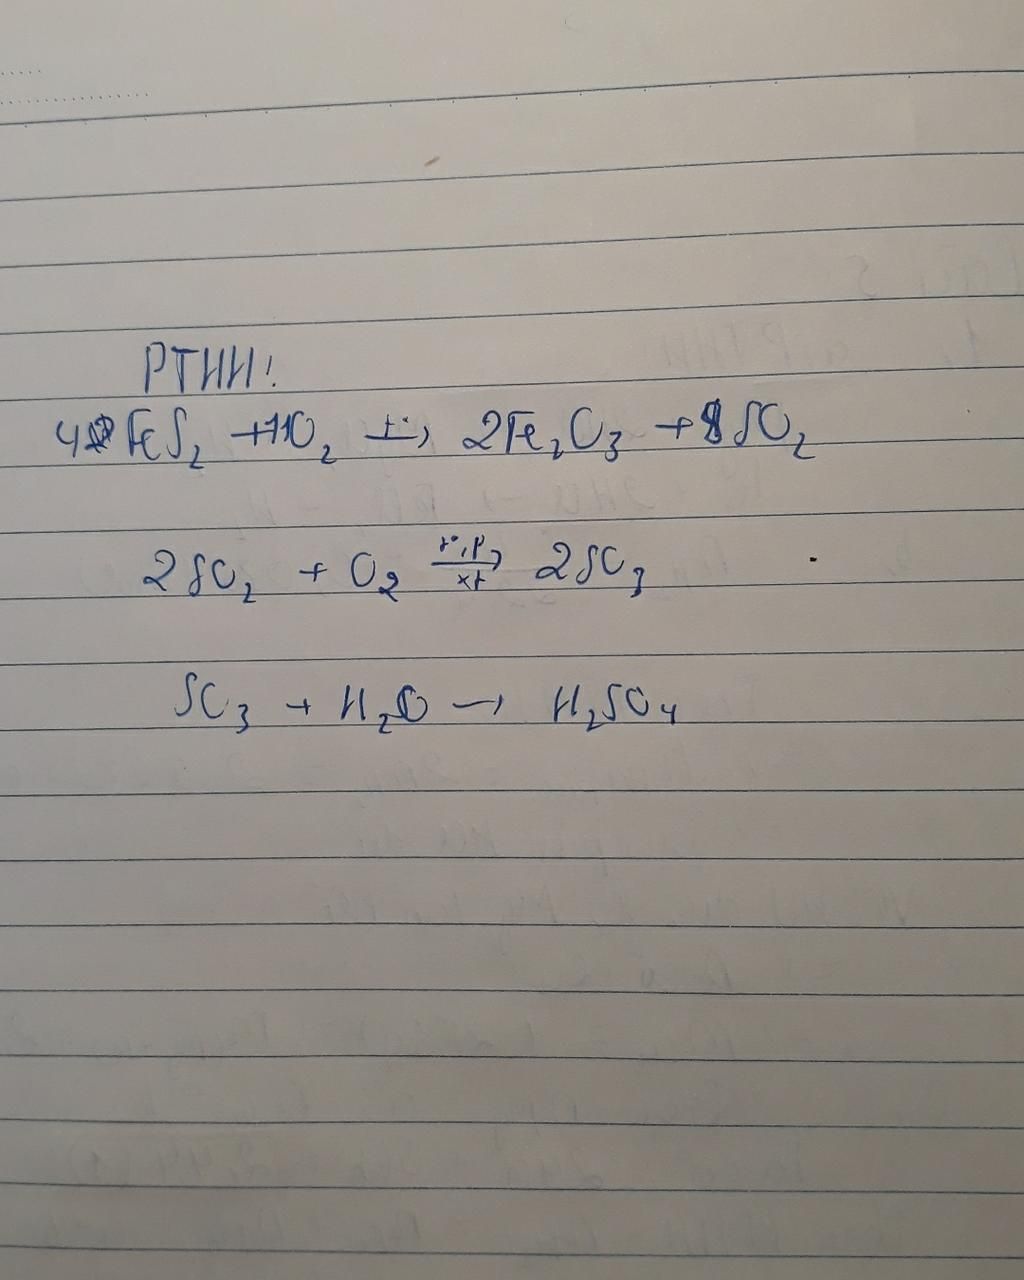 PTHH!
4FeS₂ + 11O₂ —t°→ 2Fe₂O₃ + 8SO₂
2SO₂ + O₂ —t°, p / xt→ 2SO₃
SO₃ + H₂O → H₂SO₄